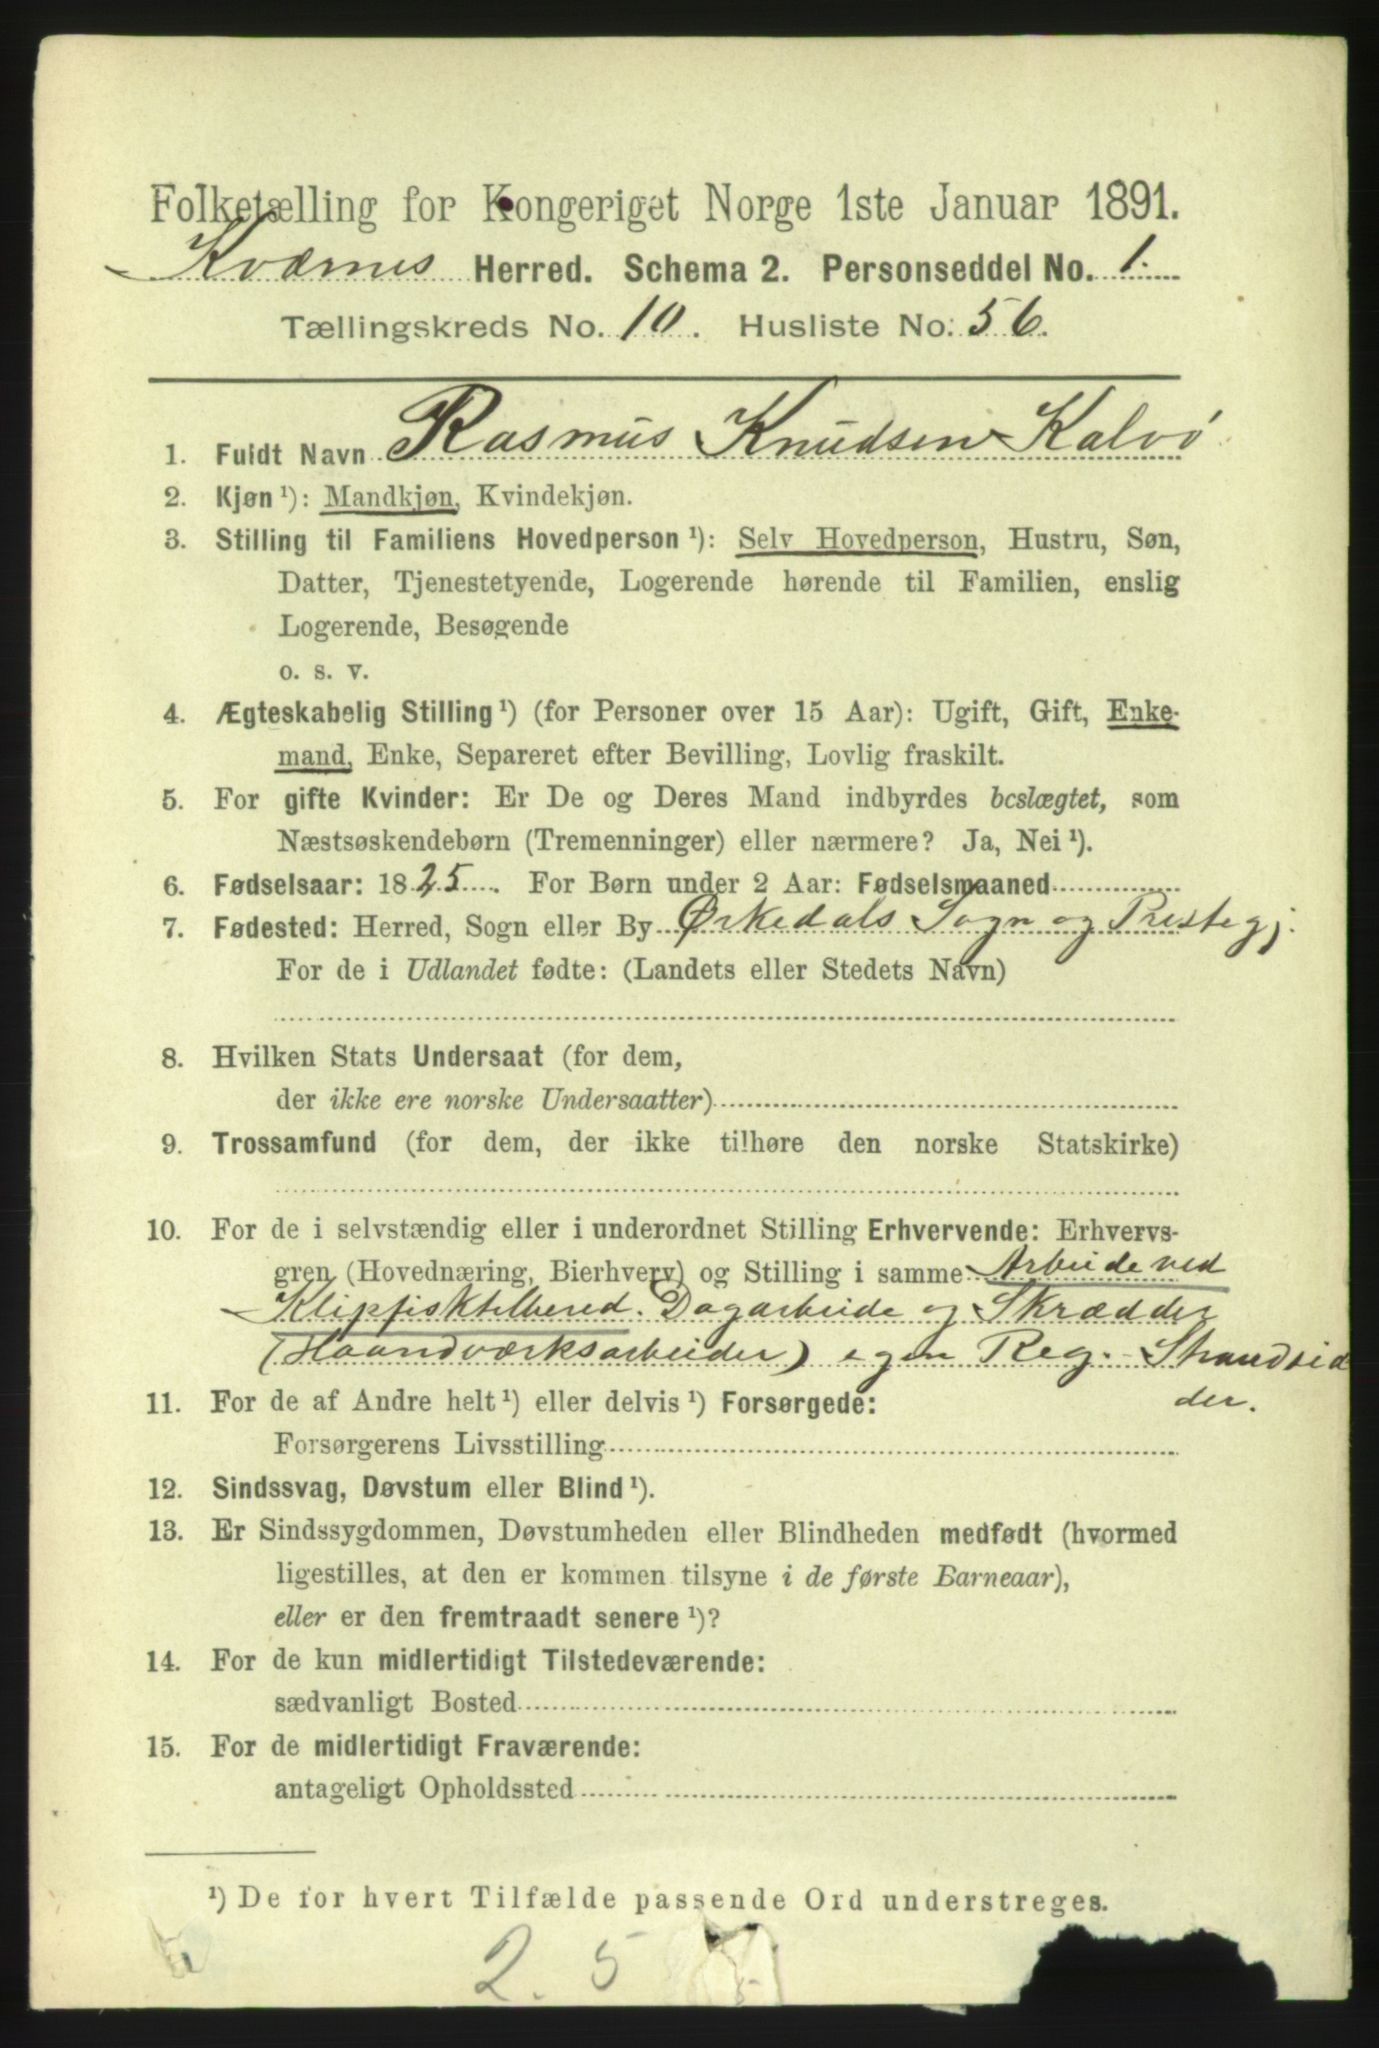 Folketælling for Kongeriget Norge 1ste Januar 1891.
Kværnes Herred. Schema 2. Personseddel No. 1.
Tællingskreds No. 10. Husliste No. 56.
1. Fuldt Navn Rasmus Knudsen Kalvø
2. Kjøn ¹): Mandkjøn, Kvindekjøn.
3. Stilling til Familiens Hovedperson ¹): Selv Hovedperson, Hustru, Søn,
Datter, Tjenestetyende, Logerende hørende til Familien, enslig
Logerende, Besøgende
o. s. v.
4. Ægteskabelig Stilling ¹) (for Personer over 15 Aar): Ugift, Gift, Enke-
mand, Enke, Separeret efter Bevilling, Lovlig fraskilt.
5. For gifte Kvinder: Er De og Deres Mand indbyrdes beslægtet, som
Næstsøskendebørn (Tremenninger) eller nærmere? Ja, Nei ¹).
6. Fødselsaar: 1825. For Børn under 2 Aar: Fødselsmaaned
7. Fødested: Herred, Sogn eller By Ørkedals Sogn og Prestegj.
For de i Udlandet fødte: (Landets eller Stedets Navn)
8. Hvilken Stats Undersaat (for dem,
der ikke ere norske Undersaatter)
9. Trossamfund (for dem, der ikke tilhøre den norske Statskirke)
10. For de i selvstændig eller i underordnet Stilling Erhvervende: Erhvervs-
gren (Hovednæring, Bierhverv) og Stilling i samme Arbeide ved
Klipfisktilbered. Dagarbeide og Skrædder
(Haandværksarbeider) egen Reg. Strandsid
der.
11. For de af Andre helt ¹) eller delvis ¹) Forsørgede:
Forsørgerens Livsstilling
12. Sindssvag, Døvstum eller Blind ¹).
13. Er Sindssygdommen, Døvstumheden eller Blindheden medfødt (hvormed
ligestilles, at den er kommen tilsyne i de første Barneaar),
eller er den fremtraadt senere ¹)?
14. For de kun midlertidigt Tilstedeværende:
sædvanligt Bosted
15. For de midlertidigt Fraværende:
antageligt Opholdssted
¹) De for hvert Tilfælde passende Ord understreges.
2. 5